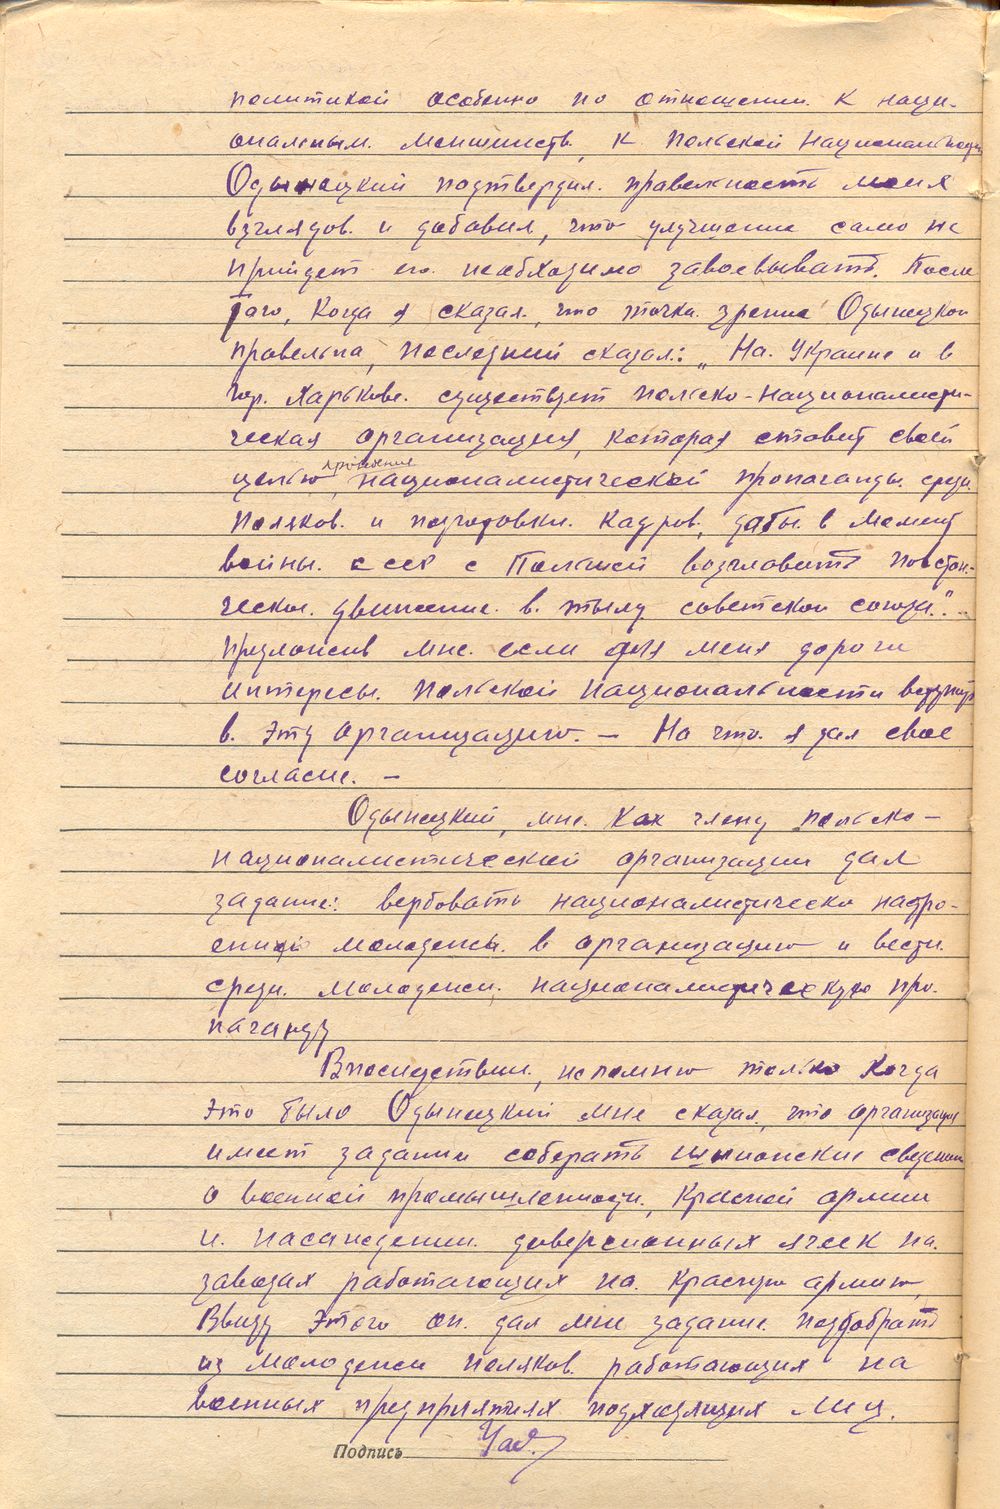 политикой особенно по отношении к наци-
ональным меншинств, к польской национальности
Одынецкий подтвердил правельность моих
взглядов и добавил, что улучшение само не
прийдет его необходимо завоевывать. После
того, когда я сказал, что точка зрения Одынецкой
правельна, последний сказал: „На Украине и в
гор. Харькове существует польско-националисти-
ческая организация, которая ставит своей
проведение
целью, националистической пропаганды среди
поляков и подготовки кадров, дабы в момент
войны ссср с Польшей возглавить повстан-
ческое движение в тылу советской союза."-
предложив мне если для меня дороги
интересы польской национальности вступить
в эту организацию. - На что я дал свое
согласие. -
Одынецкий, мне как члену польско-
националистической организации дал
задание: вербовать националистическо настро-
енной молодежь в организацию и вести
среди молодежи националистическую про-
паганду
Впоследствии, непомню только когда
это было Одынецкий мне сказал, что организация
имеет задании соберать шпионские сведении
о военной промышленности, красной армии
и насаждении диверсионных ячеек на
заводах работающих на красную армию,
Ввиду этого он дал мне задание подобрать
из молодежи поляков работающих на
военных предприятиях подходящих лиц.
Подпись